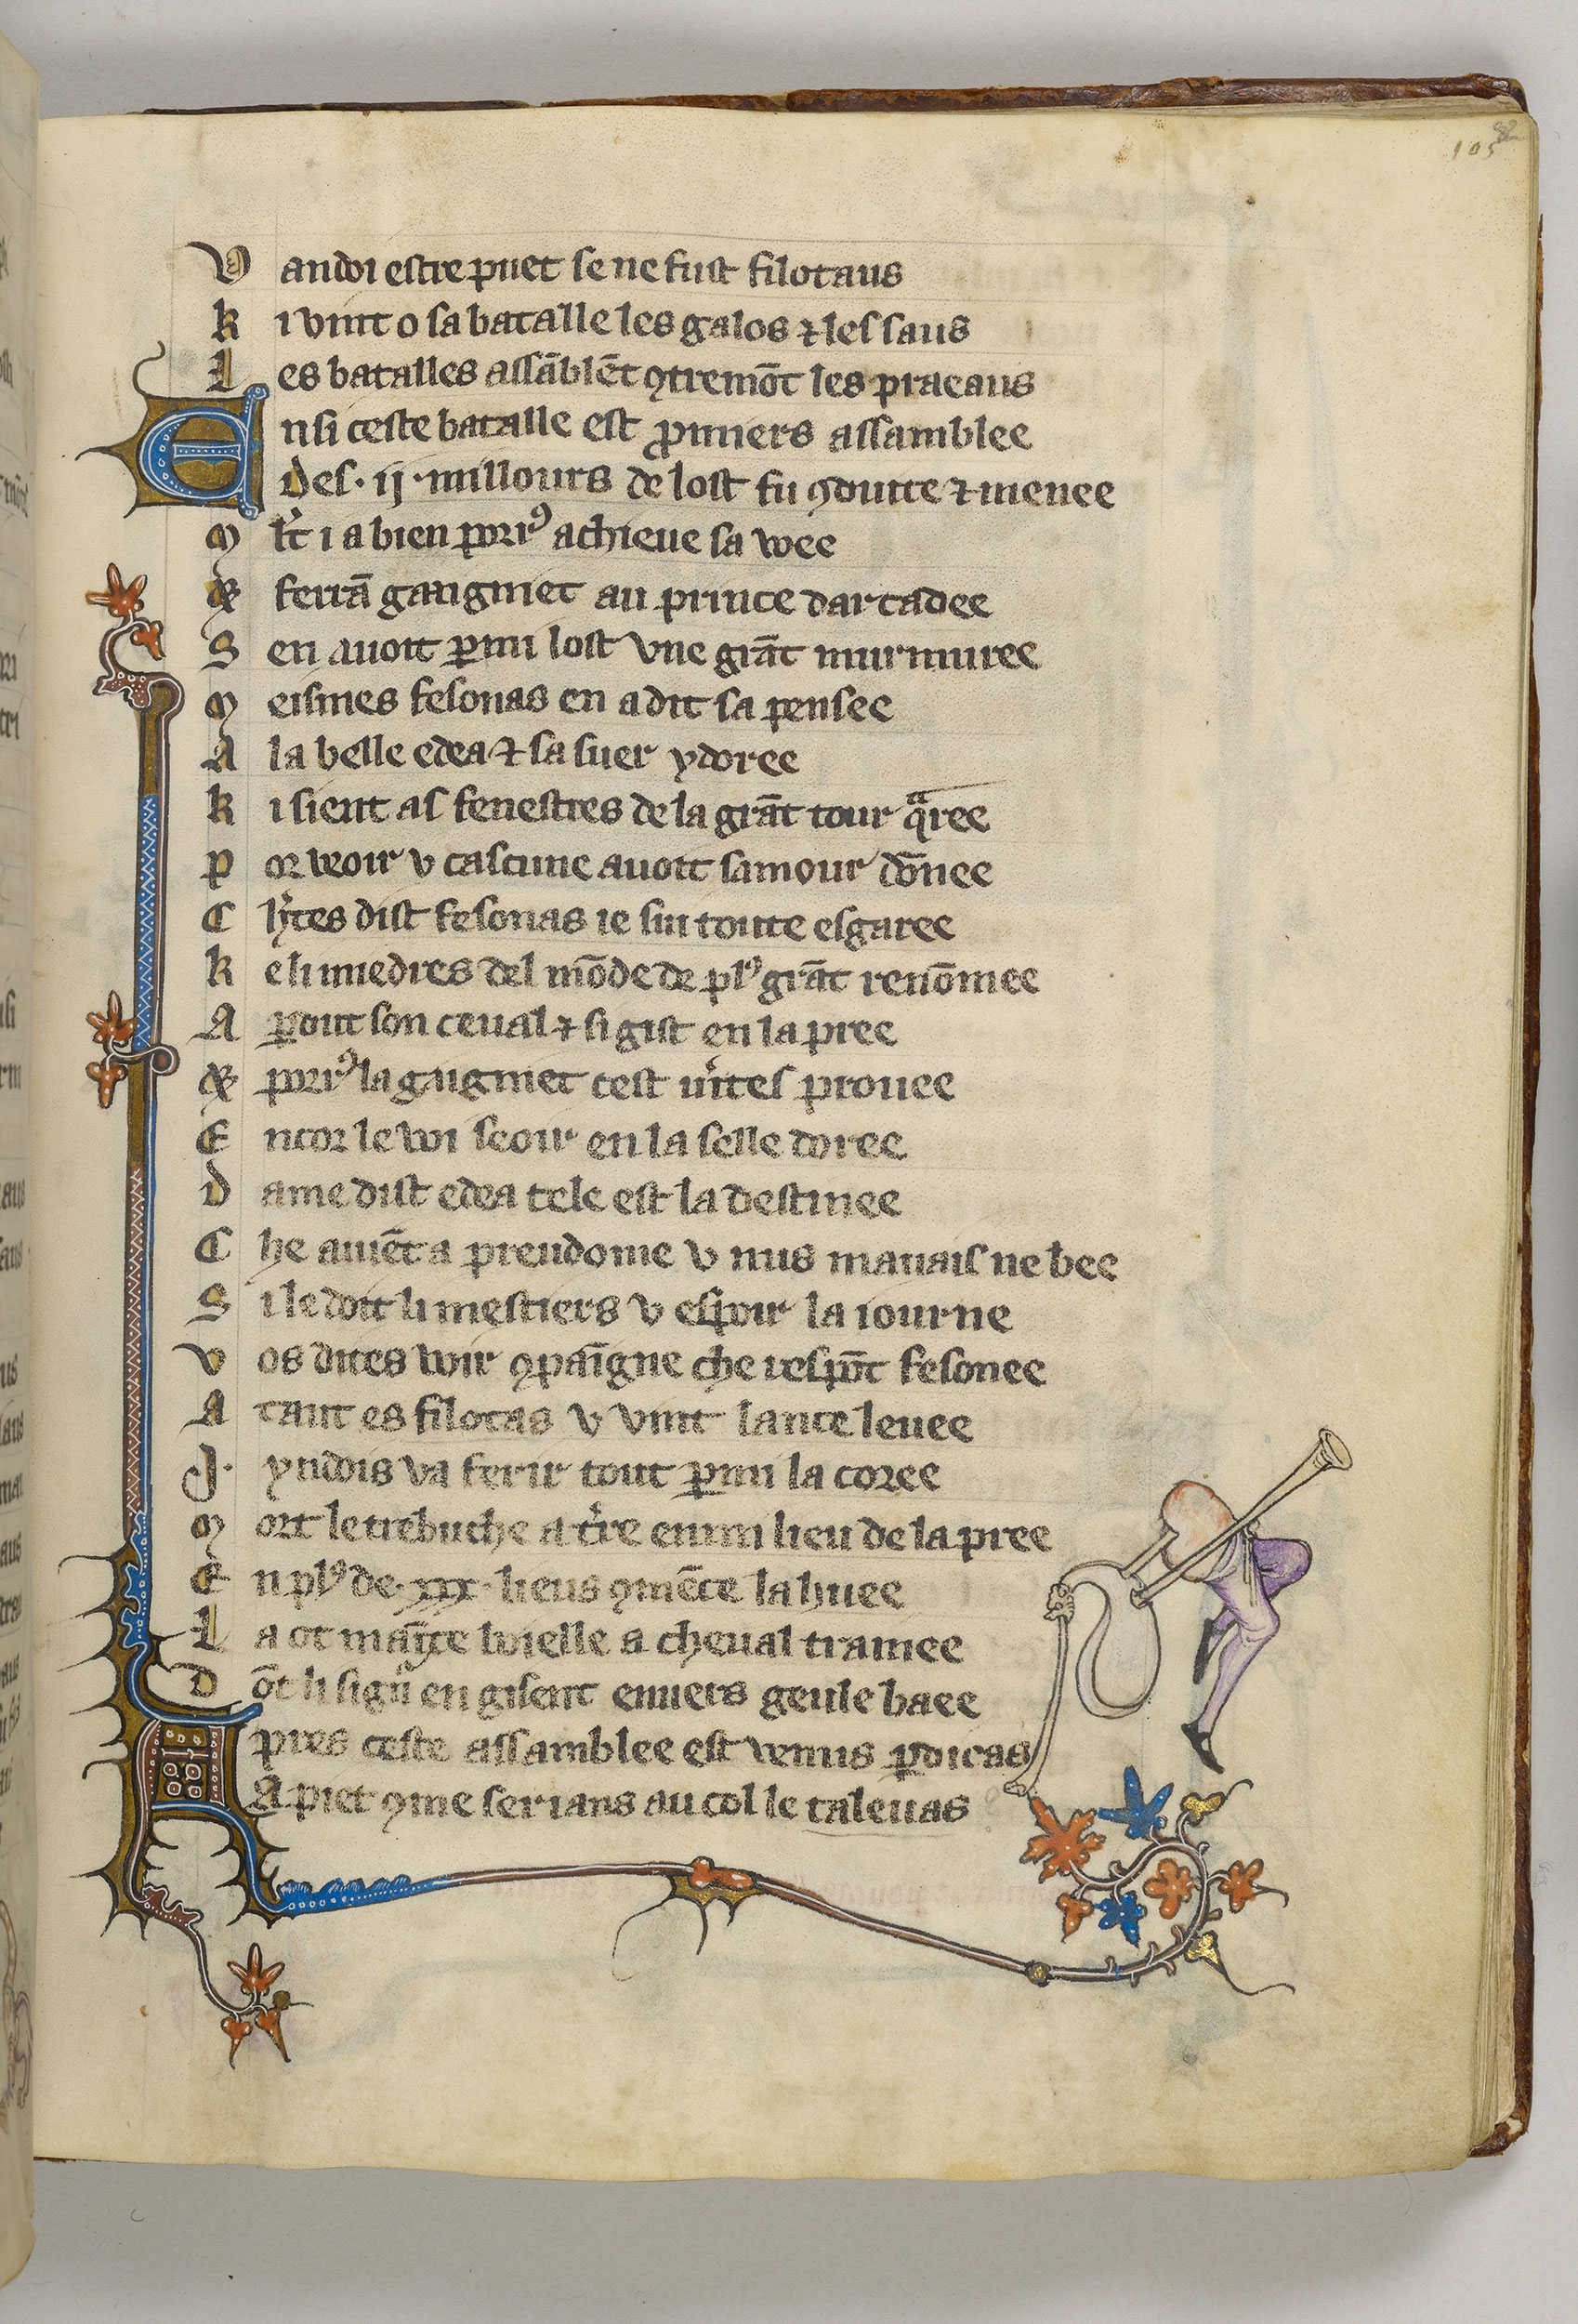 105 82
V andoi estre puet se ne fust filotaus
k i vint o sa batalle les galos ⁊ les saus
L es batalles assãblẽt ꝯtremõt les praeaus
E nsi ceste batalle est pꝛimiers assamblee
Des · ij · millours de lost fu ꝯduite ⁊ menee
M lͭt i a bien porrꝰ achieue sa voee
⁊ ferrã gaaigniet au prince darcadee
S en auoit ꝑmi lost vne grãt murmuree
M eismes fesonas en a dit sa pensee
A la belle edea ⁊ sa suer ydoree
k i sient as fenestres de la grãt tour qͣree
P or veoir v cascune auoit samour dõnee
C hͬtes dist fesonas ie sui toute esgaree
k e li miedres del mõde de plꝰ grãt renõmee
A ꝑdut son ceual ⁊ si gist en la pree
⁊ porrꝰ la gaigniet cest uͥtes prouee
E ncor le voi seoir en la selle doree
D ame dist edea tele est la destinee
C he auiẽt a preudome v nus mauais ne bee
S i le doit li mestiers v espoir la iourne
V os dites voir ꝯpaĩgne che respõt fesonee
A tant es filotas v vint lance leuee
J · yndois va ferir tout ꝑmi la coree
M ort le trebuche a tͬre enmi lieu de la pree
E n plꝰ de · xxx · lieus ꝯmẽce la huee
L a ot maĩte boielle a cheual trainee
D õt li signͬ en gisent enuers geule baee
A pres ceste assamblee est venus ꝑdicas
A piet ꝯme serians au col le taleuas